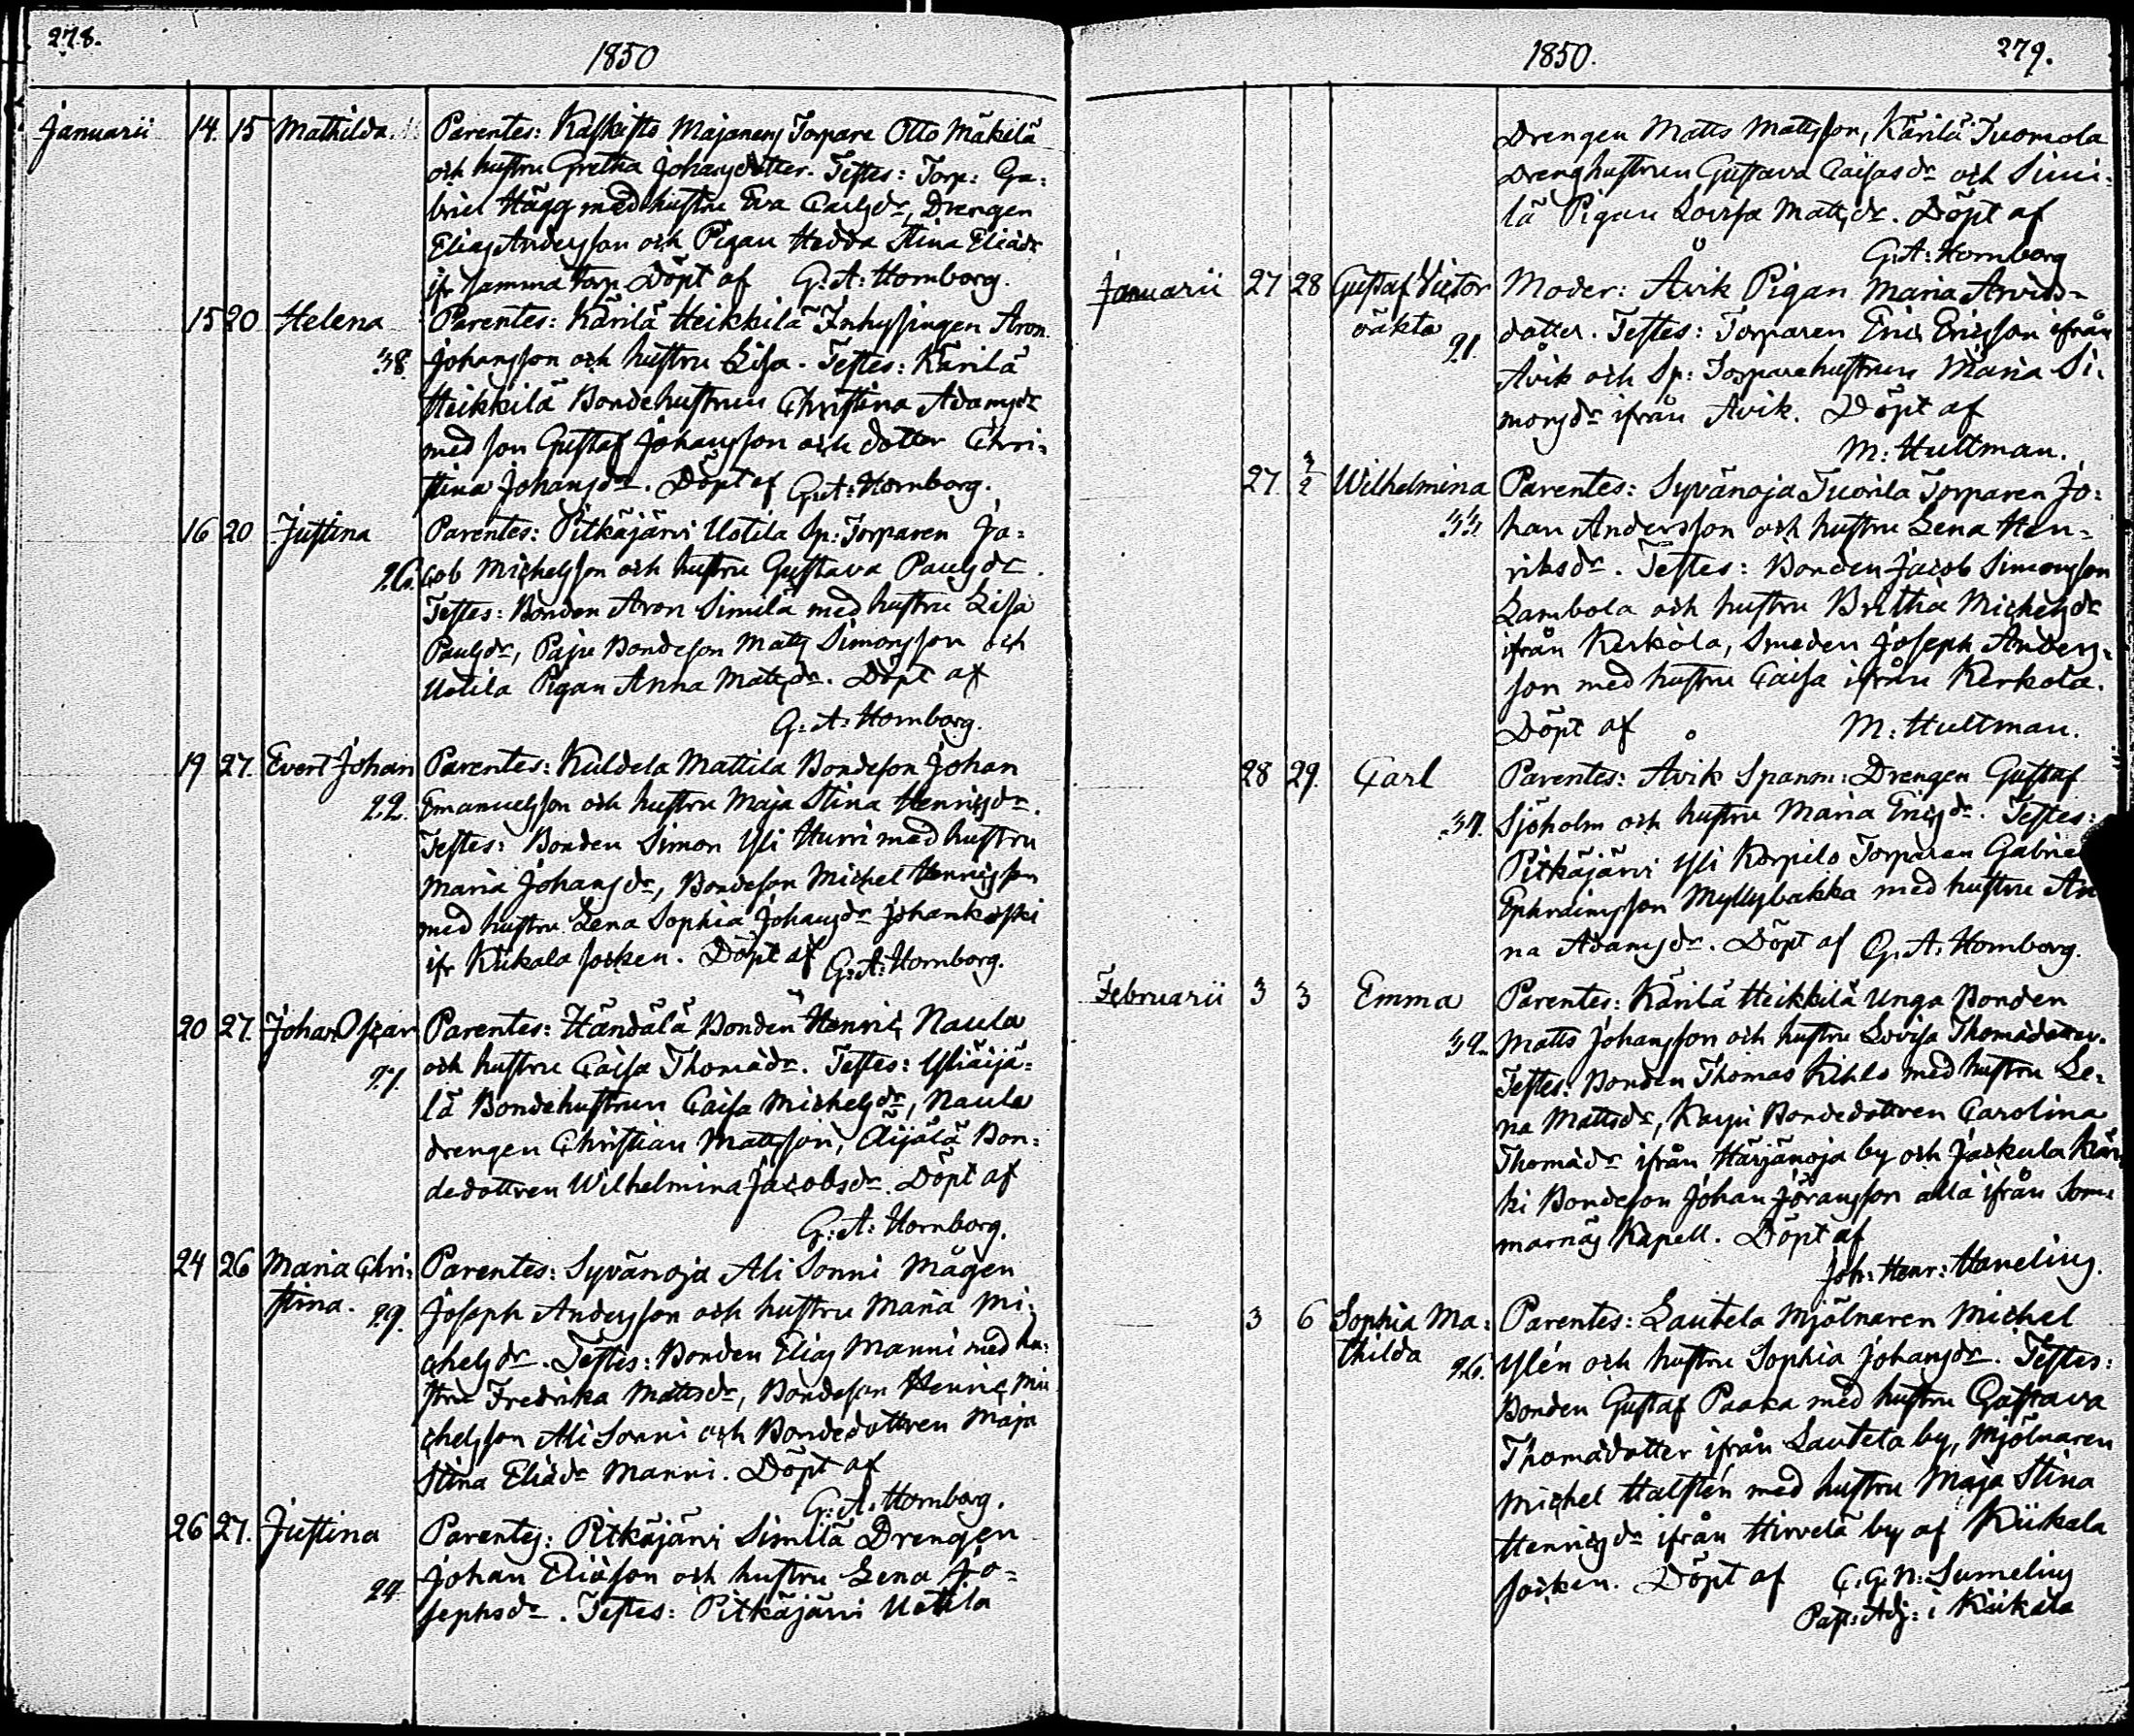 278.
1850
Januarii 14. 15 Mathilda. Parentes: Kaskisto Majanens Torpare Otto Mäkilä
och hustru Gretha Johansdotter. Testes: Torp: Ga=
briel Hägg med hustru Eva Carlsdr, Drengen
Elias Andersson och Pigan Hedda Stina Eliædr
ifr samma torp. Döpt af G: A: Hornborg.
15 20 Helena Parentes: Kärilä Heikkilä Inhysingen Aron
38. Johansson och hustru Lisa. Testes: Kärilä
Heikkilä Bondehustrun Christina Adamsdr
med son Gustaf Johansson och dotter Chri=
stina Johansdr. Döpt af G: A: Hornborg.
16 20 Justina Parentes: Pitkäjärvi Uotila Sp: Torparen Ja=
26. cob Michelsson och hustru Gustava Paulsdr.
Testes: Bonden Aron Similä med hustru Lisa
Paulsdr, Paju Bondeson Matts Simonsson och
Uotila Pigan Anna Mattsdr. Döpt af
G: A: Hornborg.
19 27. Evert Johan Parentes: Kuldela Mattila Bondeson Johan
22. Emanuelsson och hustru Maja Stina Henricsdr.
Testes: Bonden Simon Yli Hurri med hustru
Maria Johansdr, Bondeson Michel Henricsson
med hustru Lena Sophia Johansdr Johankoski
ifr Kiikala socken. Döpt af G: A: Hornborg.
20 27. Johan Oscar Parentes: Händälä Bonden Henric Naula
27. och hustru Caisa Thomædr. Testes: Yliäijä=
lä Bondehustrun Caisa Michelsdr, Naula
drengen Christian Mattsson, Äijälä Bon=
dedottren Wilhelmina Jacobsdr. Döpt af
G: A: Hornborg.
24 26 Maria Chri= Parentes: Syvänoja Ali Sonni Mågen
stina. 29. Joseph Andersson och hustru Maria Mi=
chelsdr. Testes: Bonden Elias Manni med hu=
stru Fredrika Mattsdr, Bondeson Henric Mi
chelsson Ali Sonni och Bondedottren Maja
Stina Eliædr Manni. Döpt af
G: A: Hornborg.
26 27. Justina Parentes: Pitkäjärvi Similä Drengen
24. Johan Eliæson och hustru Lena Jo=
sephsdr. Testes: Pitkäjärvi Uotila
1850. 279.
Drengen Matts Mattsson, Kärilä Tuomola
Drenghustrun Gustava Caisasdr och Simi=
lä Pigan Lovisa Mattsdr. Döpt af
G: A: Hornborg
Januarii 27 28 Gustaf Victor Moder: Åvik Pigan Maria Arvids=
oäkta 21. dotter. Testes: Torparen Eric Ericsson ifrån
Åvik och Sp: Torparehustrun Maria Si=
monsdr ifrån Åvik. Döpt af
M: Hultman.
27 3/2 Wilhelmina Parentes: Syvänoja Tuorila Torparen Jo=
33 han Andersson och hustru Lena Hen=
riksdr. Testes: Bonden Jacob Simonsson
Lambola och hustru Britha Michelsdr
ifrån Kerkola, Smeden Joseph Anders=
son med hustru Caisa ifrån Kerkola.
Döpt af M: Hultman.
28 29. Carl Parentes: Åvik Spanm: Drengen Gustaf
37. Sjöholm och hustru Maria Ericsdr. Testes:
Pitkäjärvi Yli Korpilo Torparen Gabrie
Ephraimsson Myllybakka med hustru An
na Adamsdr. Döpt af G: A: Hornborg.
Februarii 3 3 Emma Parentes: Kärilä Heikkilä Unga Bonden
32. Matts Johansson och hustru Lovisa Thomædotter.
Testes: Bonden Thomas Kihlo med hustru Le=
na Mattsdr, Karpi Bondedottren Carolina
Thomædr ifrån Härjänoja by och Jaskula Kär
ki Bondeson Johan Göransson alla ifrån Som=
marnäs Kapell. Döpt af
Joh: Henr: Haneling.
3 6 Sophia Ma= Parentes: Lautela Mjölnaren Michel
thilda 26. Ylén och hustru Sophia Johansdr. Testes:
Bonden Gustaf Paaka med hustru Gustava
Thomædotter ifrån Lautela by, Mjölnaren
Michel Halstén med hustru Maja Stina
Henricsdr ifrån Hirvelä by af Kiikala
socken. Döpt af C. G. N: Sumelius
Past: Adj: i Kiikala